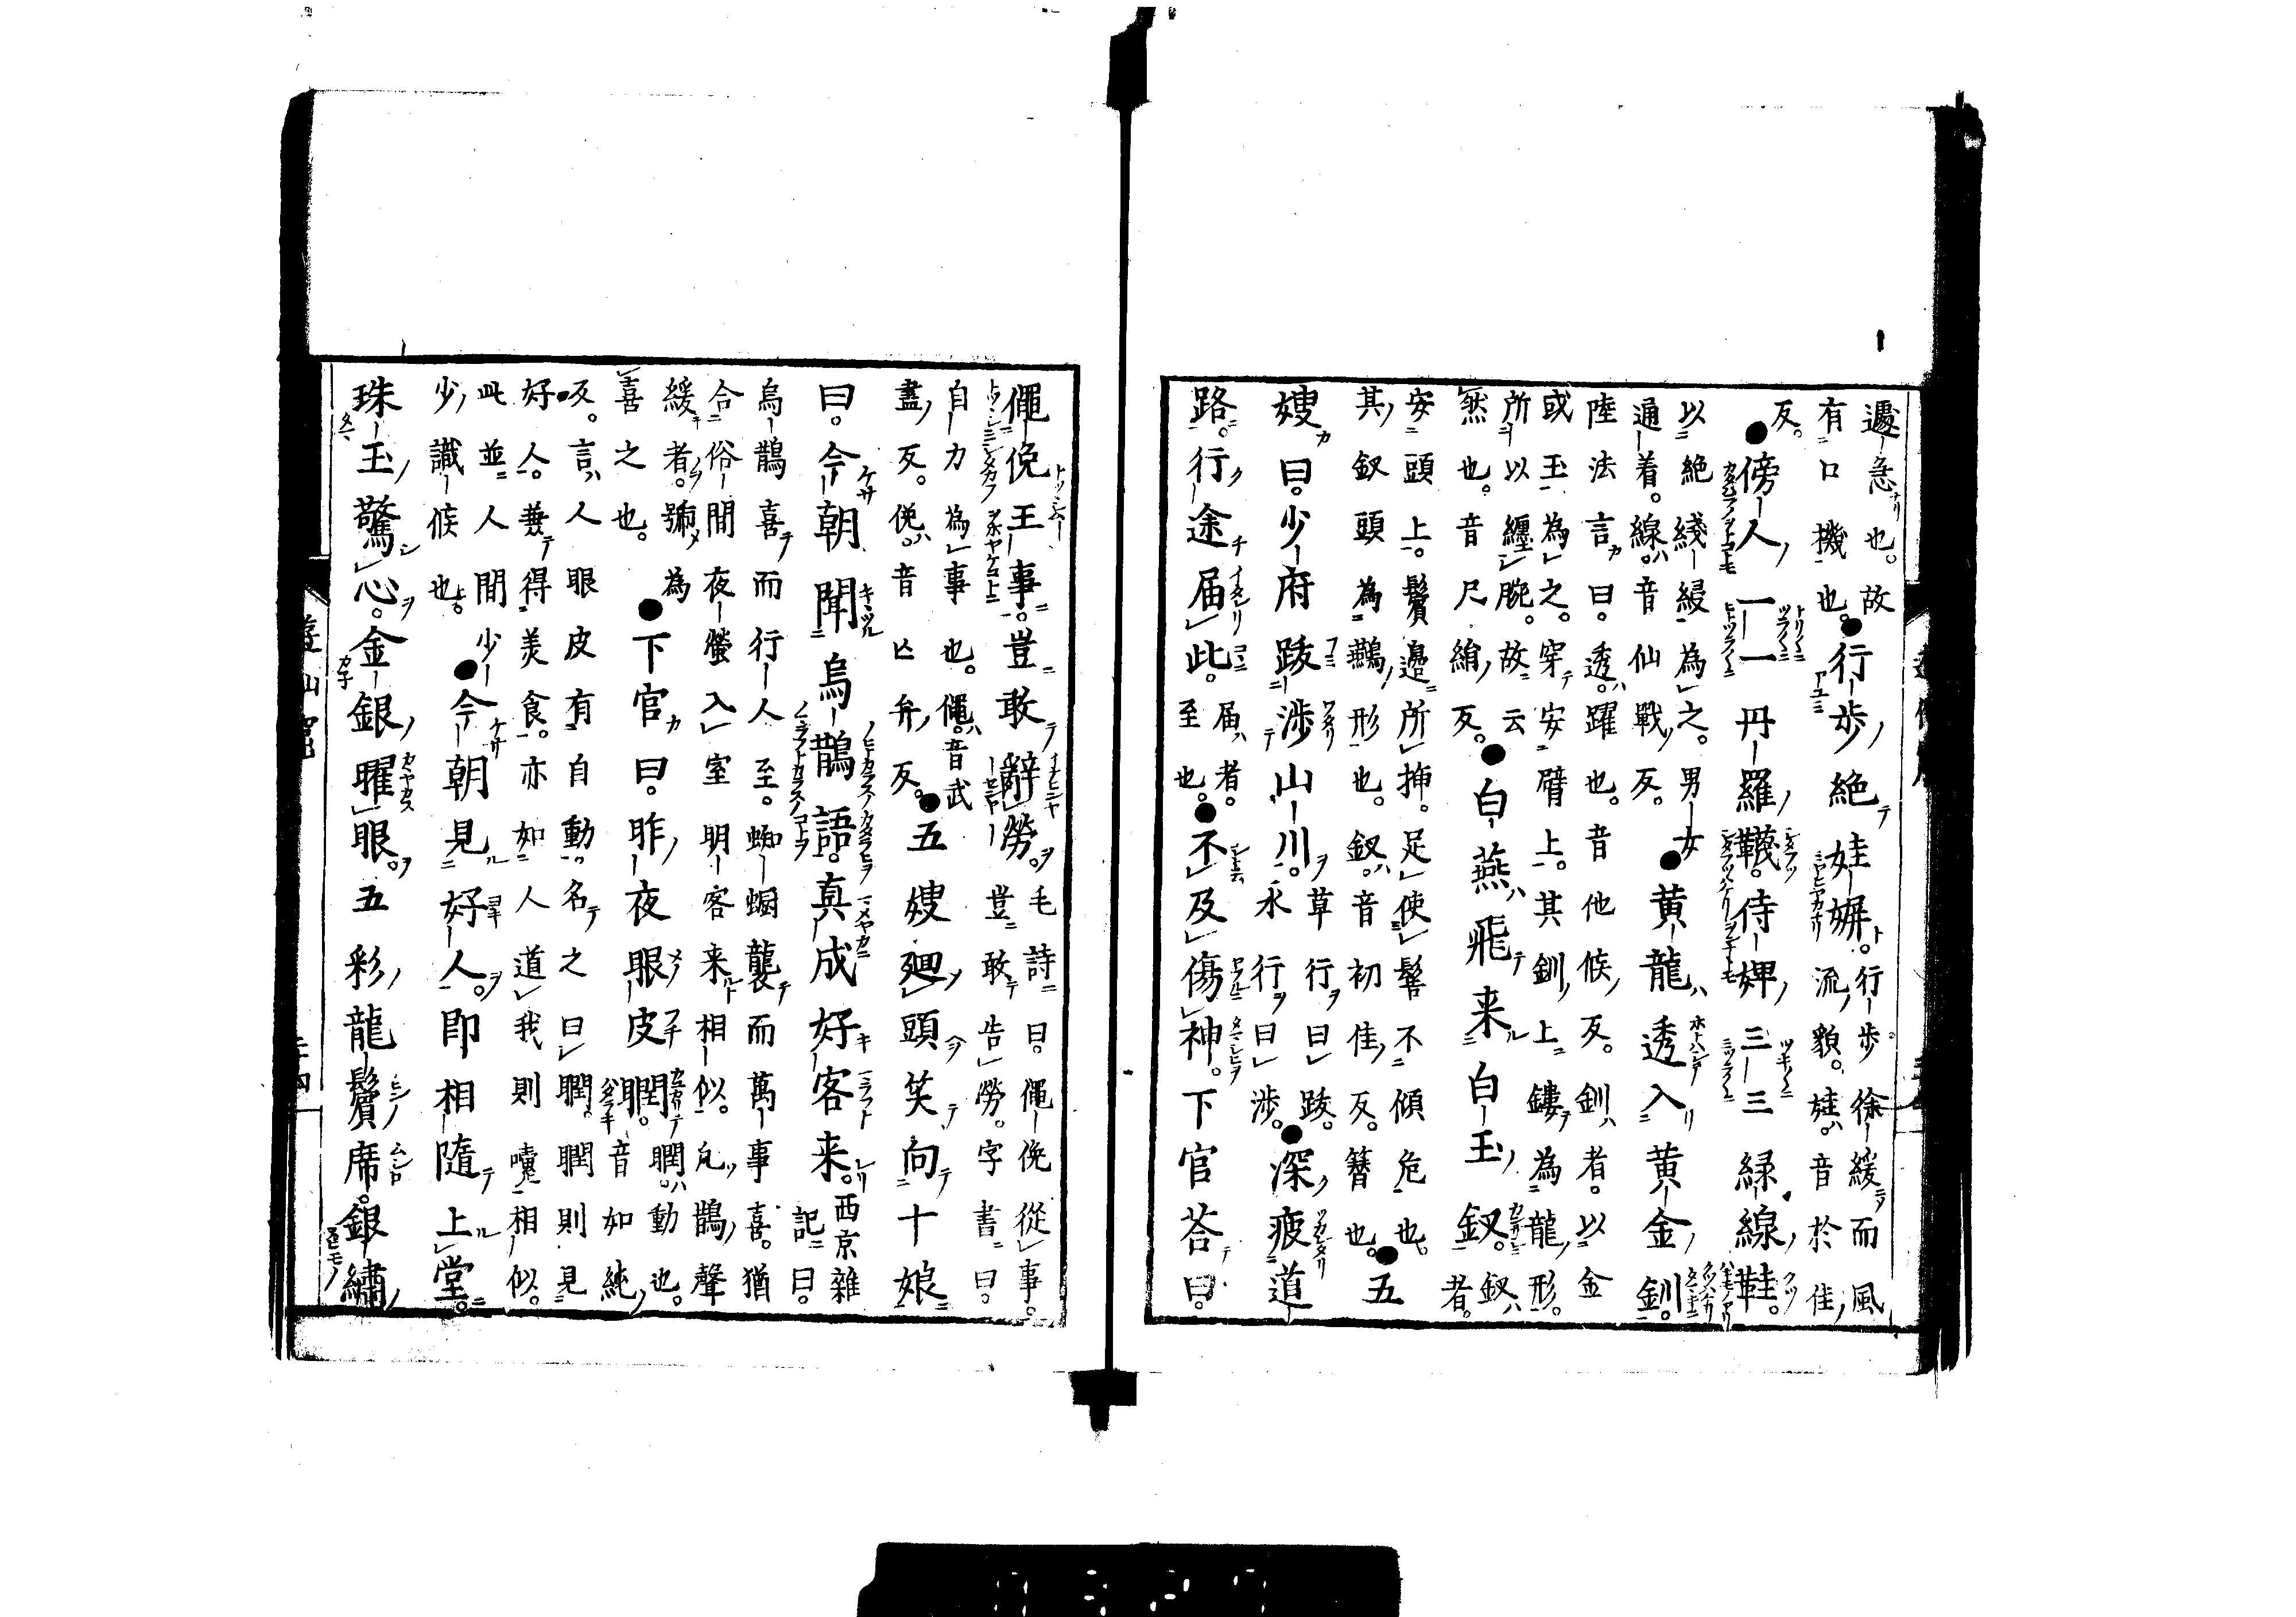 遽急也。故
有口機也。●行歩絶娃妍。行歩徐緩而風
反。流貌。娃。音於佳
●傍人一一丹羅韈。侍婢三三緑線鞋。
以絶綫緩為之。男女
通着。線。音仙戰反。●黄龍透入黄金釧。
陸法言曰。透。躍也。音他候反。釧者。以金
或玉為之。穿安臂上。其釧上鏤為龍形。
所以纏腕。故云
然也。音尺絹反。●白燕飛来白玉釵。釵者。
安頭上。鬢邊所挿。足使髻不傾危也。
其釵頭為鷰形也。釵。音初佳反。簪也。●五
嫂曰。少府跋渉山川。草行曰跋。水行曰渉。●深疲道
路。行途届此。届者。至也。●不及傷神。下官荅曰。
僶俛王事。豈敢辭勞。毛詩曰。僶俛從事。
豈敢告勞。字書曰。
自力為事也。僶。音武
盡反。俛。音亡弁反。●五嫂廻頭笑向十娘
曰。今朝聞烏鵲語。真成好客来。西京雜記曰。
烏鵲喜而行人至。蜘蛛襲而萬事喜。猶
合俗間夜螢入室明客来相似。凢鵲聲
緩者。號為
喜之也。●下官曰。昨夜眼皮瞤。瞤。動也。音如純
反。言人眼皮有自動。名之曰瞤。瞤則見
好人。兼得美食。亦如人道我則嚏相似。
此並人間少
少識候也。●今朝見好人。即相隨上堂。
珠玉驚心。金銀曜眼。五彩龍鬢席。銀繡